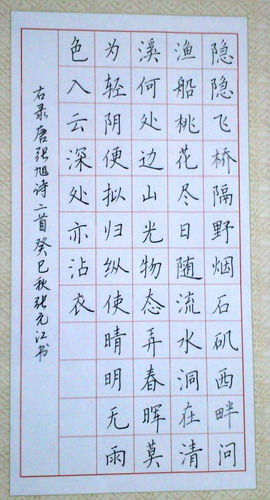 隐隐飞桥隔野烟石矶西畔问
渔船桃花尽日随流水洞在清
溪何处边山光物态弄春晖莫
为轻阴便拟归纵使晴明无雨
色入云深处亦沾衣
右录唐张旭诗二首癸巳秋张元江书